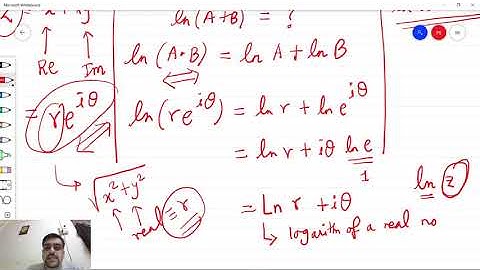 Microsoft Whiteboard
= x + iy
Re Im
= re^{iθ}
√x²+y²
real = r
ln(A+B) = ?
ln(A·B) = ln A + ln B
ln(re^{iθ}) = ln r + ln e^{iθ}
= ln r + iθ ln e
1
= Ln r + iθ
logarithm of a real no
ln z